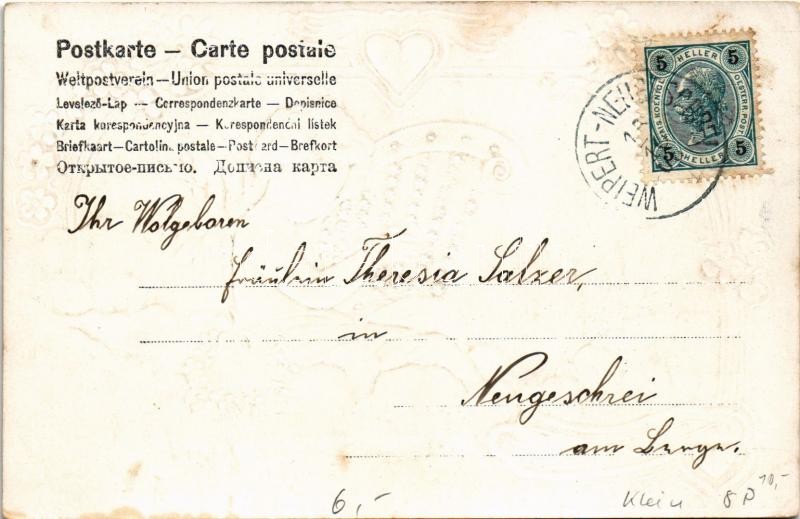 Postkarte — Carte postale
Weltpostverein — Union postale universelle
Levelező-Lap — Correspondenzkarte — Dopisnice
Karta korespondencyjna — Korespondenční lístek
Briefkaart — Cartolina postale — Postcard — Brefkort
Открытое-письмо. Дописна карта
5 HELLER 5
KAIS. KOENIGL. OESTERR. POST
5 HELLER 5
WEIPERT-NEU
Ihr Wolgeboren
Fräulein Theresia Salzer,
in
Neugeschrei
am Berge.
6,-
Klein 8P 10,-